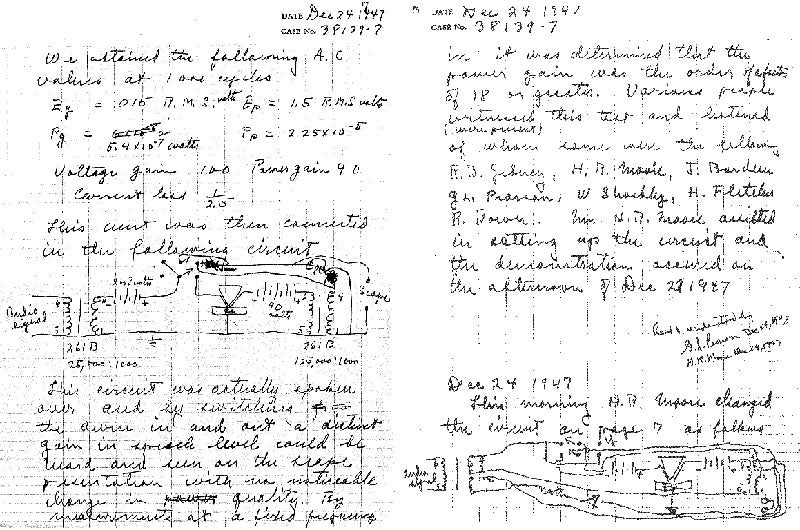 DATE Dec 24 1947
CASE No. 38139-7
We attained the following A.C.
values at 1000 cycles
Eg = .015 R.M.S. volts Ep = 1.5 R.M.S volts
Pg =
5.4 x 10-7 watts Pp = 2.25 x 10-5
Voltage gain 100 Power gain 40
Current loss 1/2.5
This unit was then connected
in the following circuit
Audio signal
Scope
90
261B
261B
25,000:1000
125,000:1000
This circuit was actually spoken
over and by switching
the device in and out a distinct
gain in speech level could be
heard and seen on the scope
presentation with no noticeable
change in quality. By
measurements at a fixed frequency
DATE Dec 24 1947
CASE No. 38139-7
in it was determined that the
power gain was the order of a factor
of 18 or greater. Various people
witnessed this test and listened
(were present)
of whom some were the following
R.B. Gibney, H.R. Moore, J. Bardeen
G.L. Pearson, W. Shockley, H. Fletcher
R. Bown. Mr. H.R. Moore assisted
in setting up the circuit and
the demonstration occured on
the afternoon of Dec 23 1947
Read & understood by
G.L. Pearson Dec 24, 1947
H.R. Moore Dec 24, 1947
Dec 24 1947
This morning H.R. Moore changed
the circuit on page 7 as follows
Audio signal